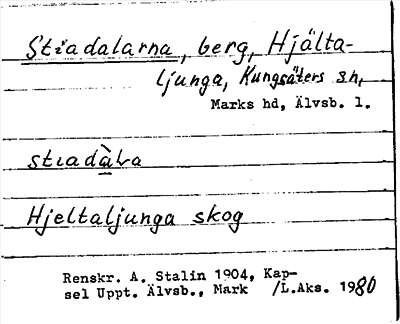 Stiadalarna, berg, Hjälta-
ljunga, Kungsäters sn,
Marks hd, Älvsb. l.
stıadàLa
Hjeltaljunga skog
Renskr. A. Stalin 1904, Kap-
sel Uppt. Älvsb., Mark /L.Aks. 1980